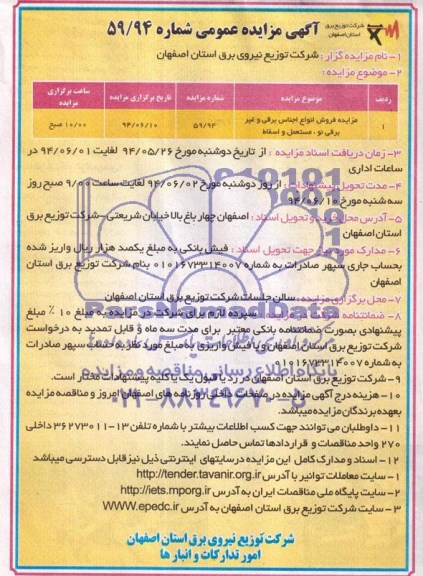 شرکت توزیع برق
استان اصفهان
آگهی مزایده عمومی شماره ۵۹/۹۴
۱- نام مزایده گزار : شرکت توزیع نیروی برق استان اصفهان
۲- موضوع مزایده :
ردیف موضوع مزایده شماره مزایده تاریخ برگزاری مزایده ساعت برگزاری مزایده
۱ مزایده فروش انواع اجناس برقی و غیر برقی نو ، مستعمل و اسقاط ۵۹/۹۴ ۹۴/۰۶/۱۰ ۱۰/۰۰ صبح
۳- زمان دریافت اسناد مزایده : از تاریخ دوشنبه مورخ ۹۴/۰۵/۲۶ لغایت ۹۴/۰۶/۰۱ در
ساعات اداری
۴- مدت تحویل پیشنهادات : از روز دوشنبه مورخ ۹۴/۰۶/۰۲ لغایت ساعت ۹/۰۰ صبح روز
سه شنبه مورخ ۹۴/۰۶/۱۰
۵- آدرس محل خرید و تحویل اسناد : اصفهان چهار باغ بالا خیابان شریعتی-شرکت توزیع برق
استان اصفهان
۶- مدارک مورد نیاز جهت تحویل اسناد : فیش بانکی به مبلغ یکصد هزار ریال واریز شده
بحساب جاری سپهر صادرات به شماره ۰۱۰۱۶۷۳۳۱۴۰۰۷ بنام شرکت توزیع برق استان
اصفهان
۷- محل برگزاری مزایده : سالن جلسات شرکت توزیع برق استان اصفهان
۸- ضمانتنامه شرکت در مزایده : سپرده لازم برای شرکت در مزایده به مبلغ ۱۰٪ مبلغ
پیشنهادی بصورت ضمانتنامه بانکی معتبر برای مدت سه ماه و قابل تمدید به درخواست
شرکت توزیع برق استان اصفهان و یا فیش واریزی به مبلغ مورد نظر به حساب سپهر صادرات
به شماره ۰۱۰۱۶۷۳۳۱۴۰۰۷
۹- شرکت توزیع برق استان اصفهان در رد یا قبول یک یا کلیه پیشنهادات مختار است.
۱۰- هزینه درج آگهی مزایده در صفحات داخلی روزنامه های اصفهان امروز و مناقصه مزایده
بعهده برندگان مزایده میباشد.
۱۱- داوطلبان می توانند جهت کسب اطلاعات بیشتر با شماره تلفن ۱۳-۳۶۲۷۳۰۱۱ داخلی
۲۷۰ واحد مناقصات و قراردادها تماس حاصل نمایند.
۱۲- اسناد و مدارک کامل این مزایده در سایتهای اینترنتی ذیل نیز قابل دسترسی میباشد
۱- سایت معاملات توانیر با آدرس http://tender.tavanir.org.ir
۲- سایت پایگاه ملی مناقصات ایران به آدرس http://iets.mporg.ir
۳- سایت شرکت توزیع برق استان اصفهان به آدرس WWW.epedc.ir
شرکت توزیع نیروی برق استان اصفهان
امور تدارکات و انبارها
پایگاه اطلاع رسانی مناقصه و مزایده
۰۲۱-۸۸۳۴۹۶۷۰-۵